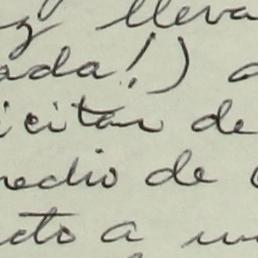 y lleva
ada!) a
icitar de
medio de
cto a un